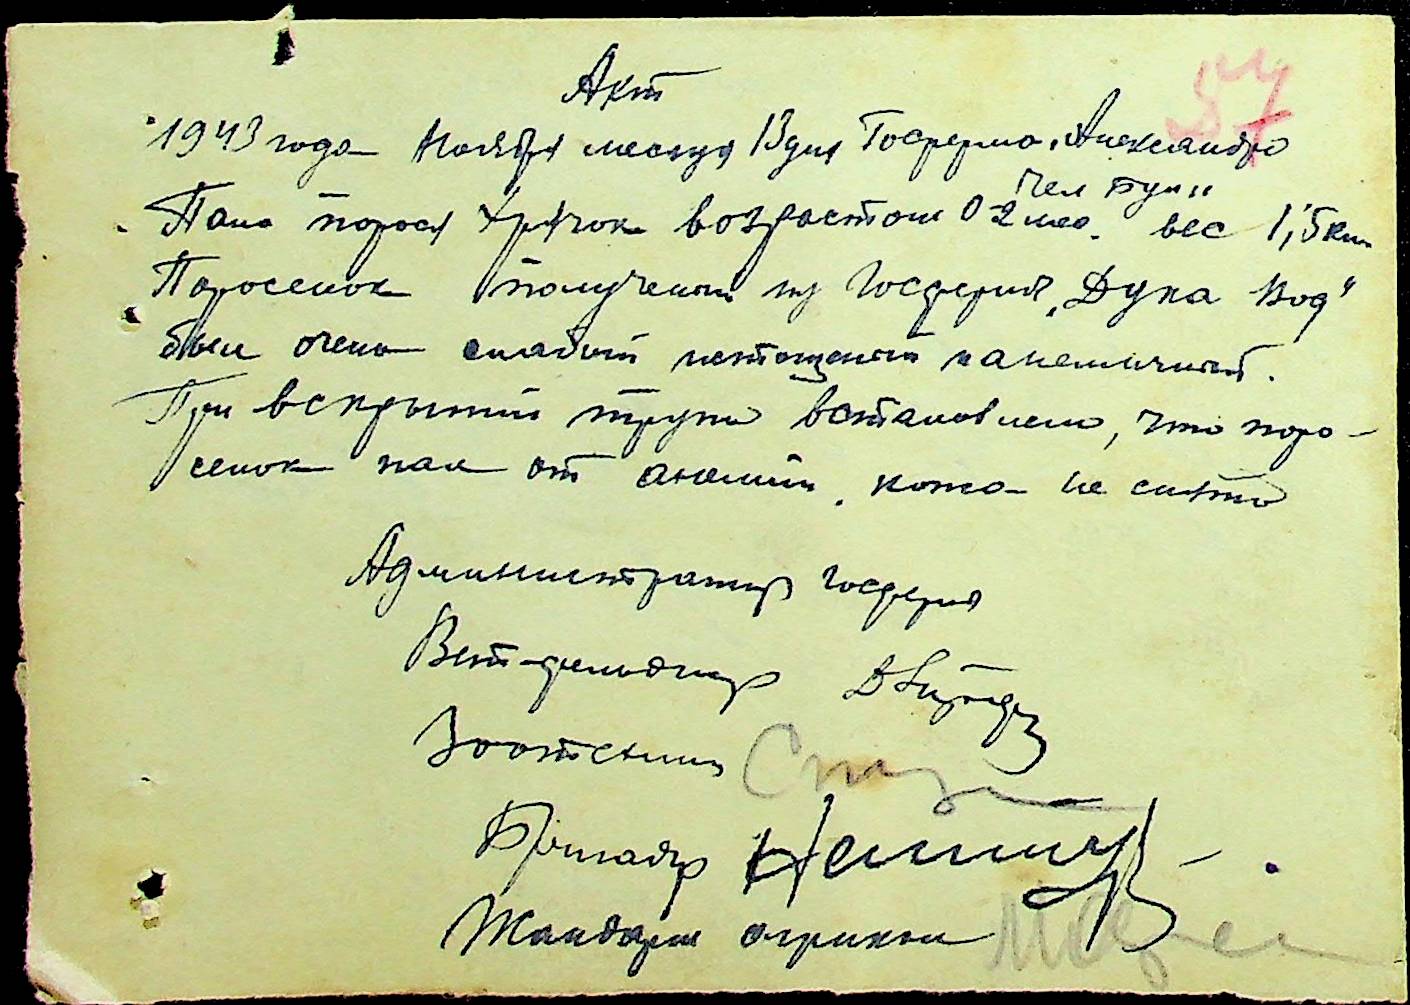 57
Акт
1943 года Ноября месяца 13 дня Госферма "Александро
чел Бун"
Пала порося Хрячок возрастом 0-2 мес. вес 1,5 кил
Поросенок получений из Госферми "Дука Вод"
был очень слабый истощеный и анемичный.
При вскрытии трупа встановлено, что поро-
сенок пал от анемии, кожа не снята
Администратор госферми
Вет-фельдшер
Зоотехник
Бригадир
Жандарм агрикол